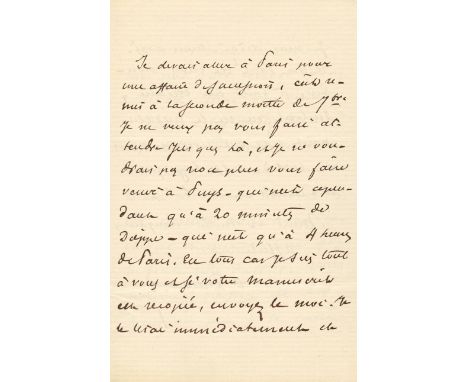 Je devais aller à Paris pour
une affaire de succession, c'est re-
mis à la seconde moitié de 7bre
Je ne veux pas vous faire at-
tendre jusque là, et je ne vou-
drais pas non plus vous faire
venir à Puys - qui n'est cepen-
dant qu'à 20 minutes de
Dieppe - qui n'est qu'à 4 heures
de Paris. En tous cas je suis tout
à vous et si votre manuscrit
est recopié, envoyez le moi. Je
le lirai immédiatement et